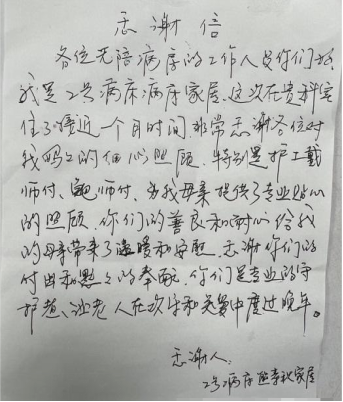 感谢信
各位无陪病房的工作人员你们好
我是2号病床病床家属,这次在贵科室
住了将近一个月时间非常感谢各位对
我妈妈的细心照顾,特别是护工戴
师付、鲍师付、为我母亲提供了专业贴心
的照顾,你们的善良和耐心给我
的母亲带来了温暖和安慰,感谢你们的
付出和默默的奉献,你们是专业的守
护者、让老人在欢乐和关爱中度过晚年。
感谢人:
2号病床 家属